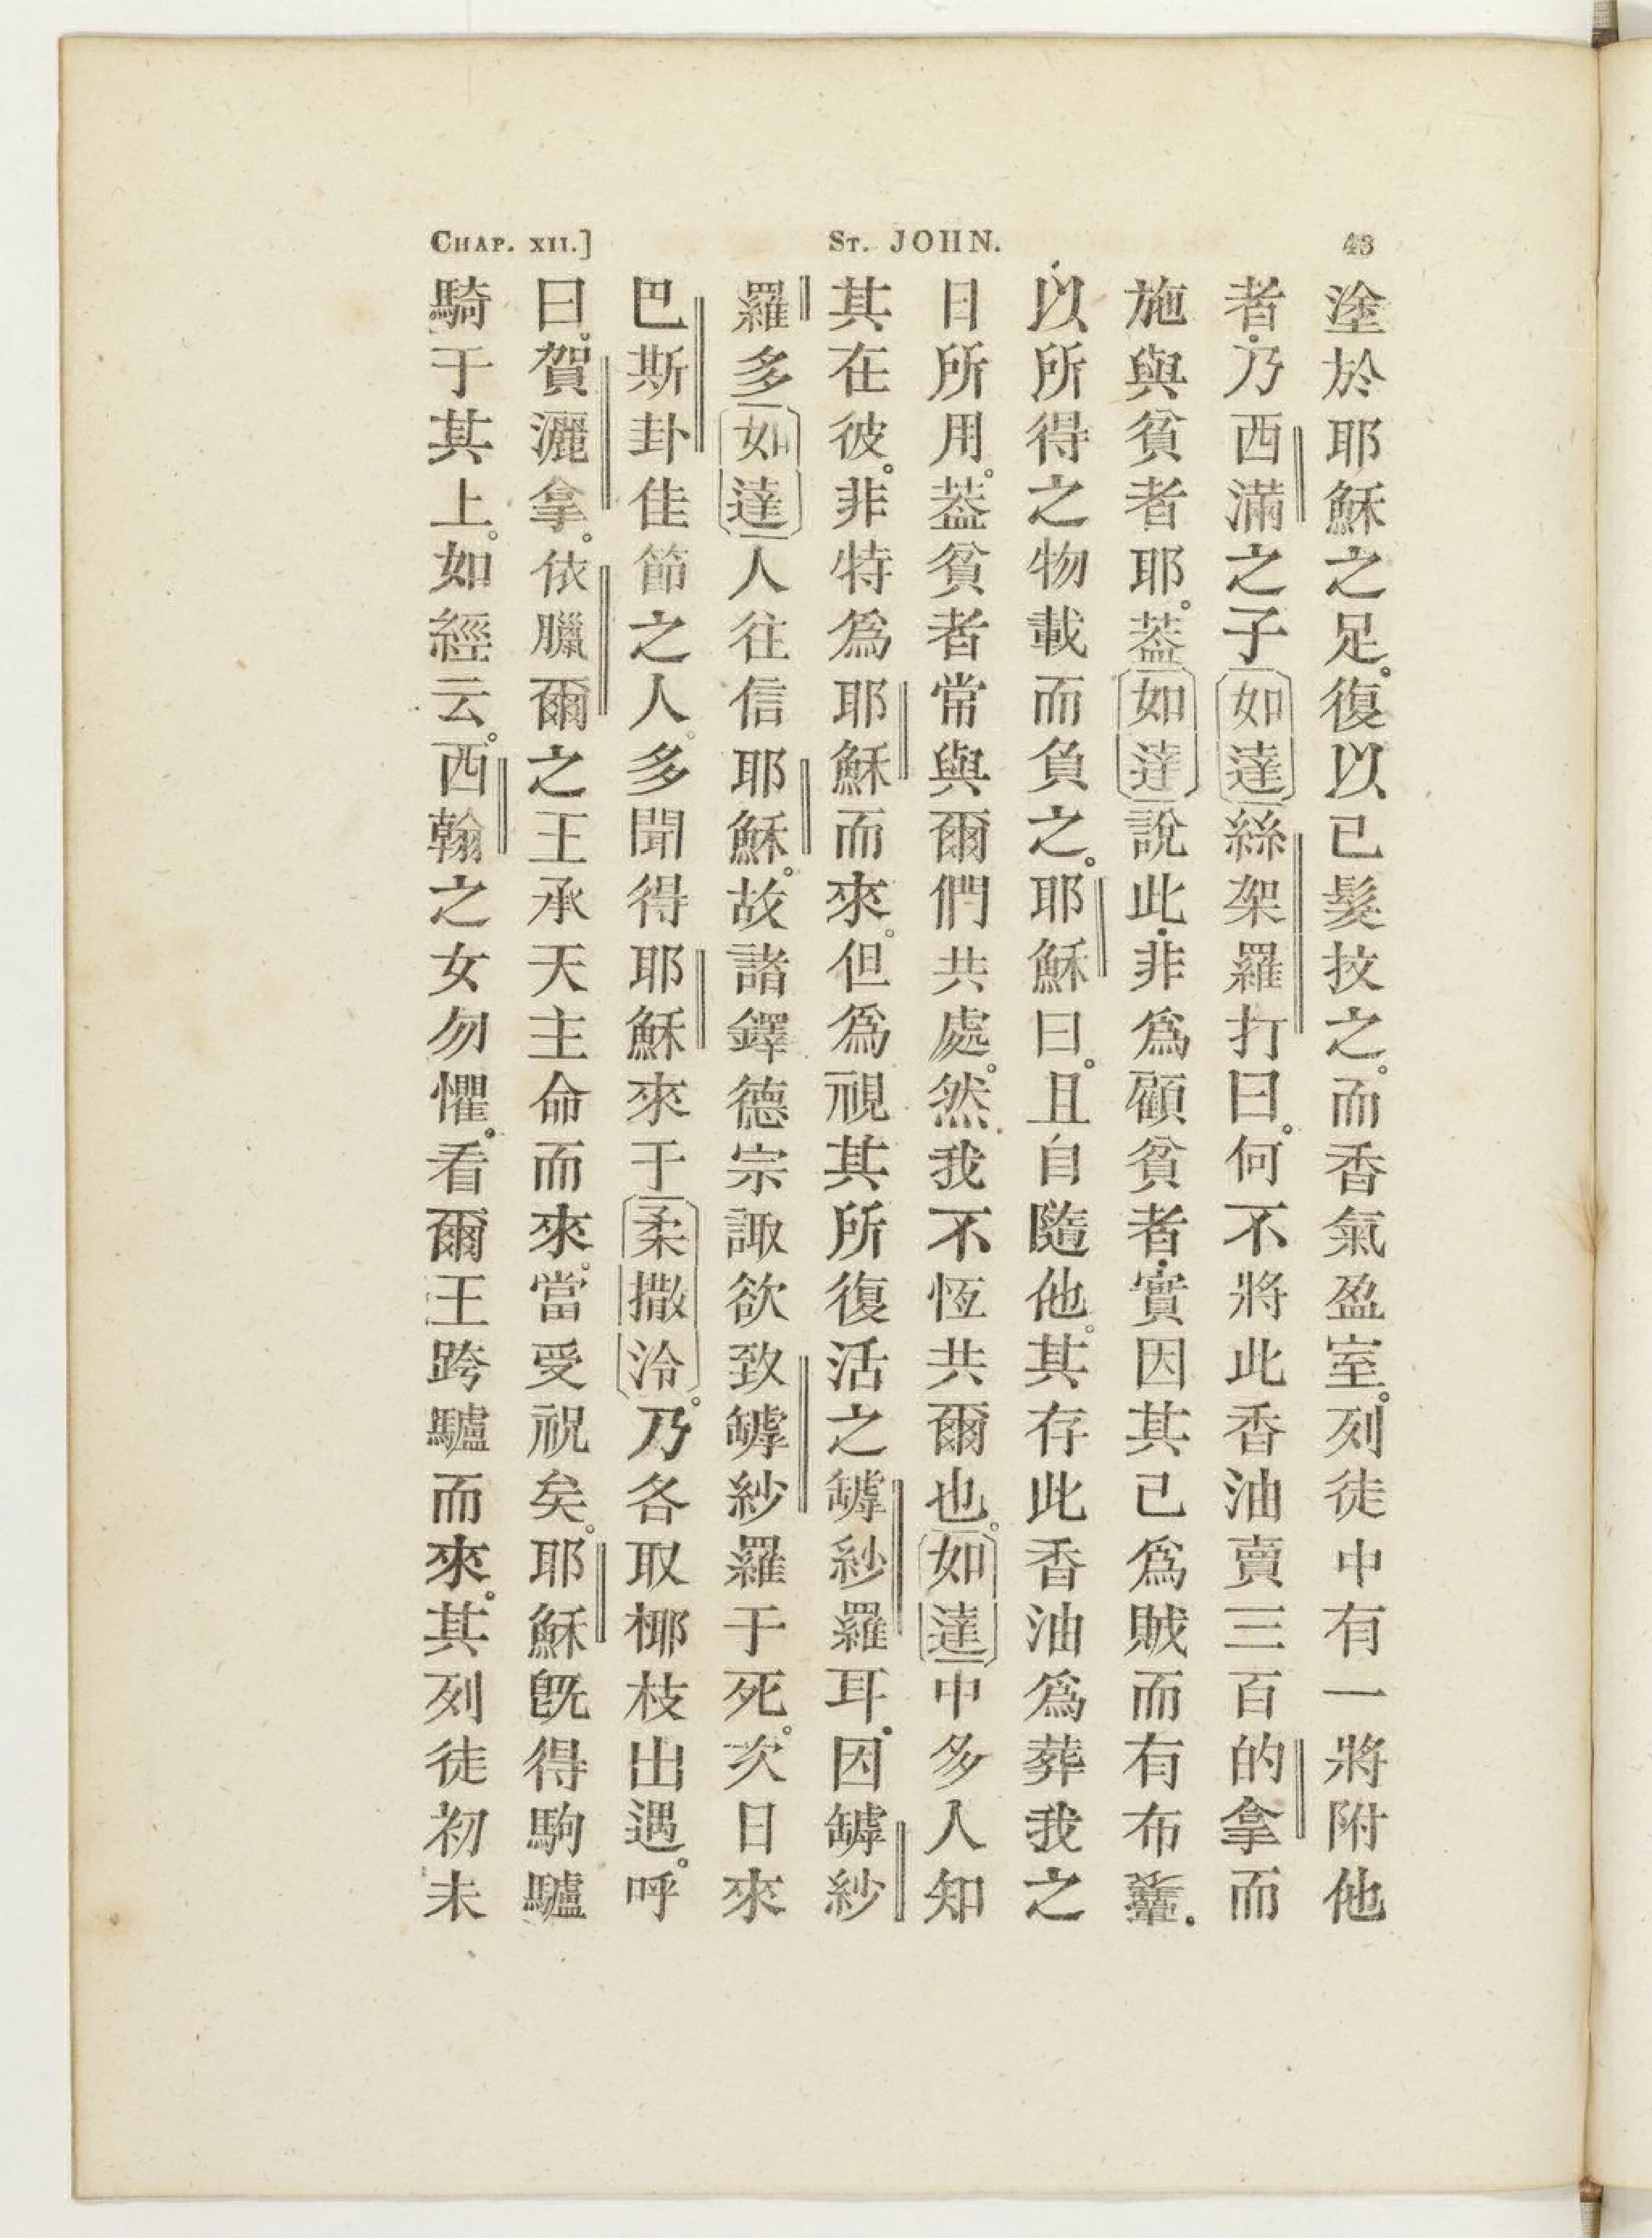 CHAP. XII.] ST. JOHN. 43
塗於耶穌之足。復以己髮抆之。而香氣盈室。列徒中有一將附他
者．乃西滿之子如達絲架羅打曰。何不將此香油賣三百的拿而
施與貧者耶。葢如達說此．非爲顧貧者．實因其己爲賊而有布．
以所得之物載而負之。耶穌曰。且自隨他。其存此香油爲葬我之
日所用。葢貧者常與爾們共處。然我不恆共爾也。如達中多人知
其在彼。非特爲耶穌而來。但爲視其所復活之罅紗羅耳．因罅紗
羅多如達人往信耶穌。故諸鐸德宗諏欲致罅紗羅于死。次日來
巴斯卦佳節之人。多聞得耶穌來于柔撒泠。乃各取椰枝出遇。呼
曰。賀灑拿。依臘爾之王承天主命而來。當受祝矣。耶穌旣得駒驢
騎于其上。如經云。西翰之女勿懼。看爾王跨驢而來。其列徒初未